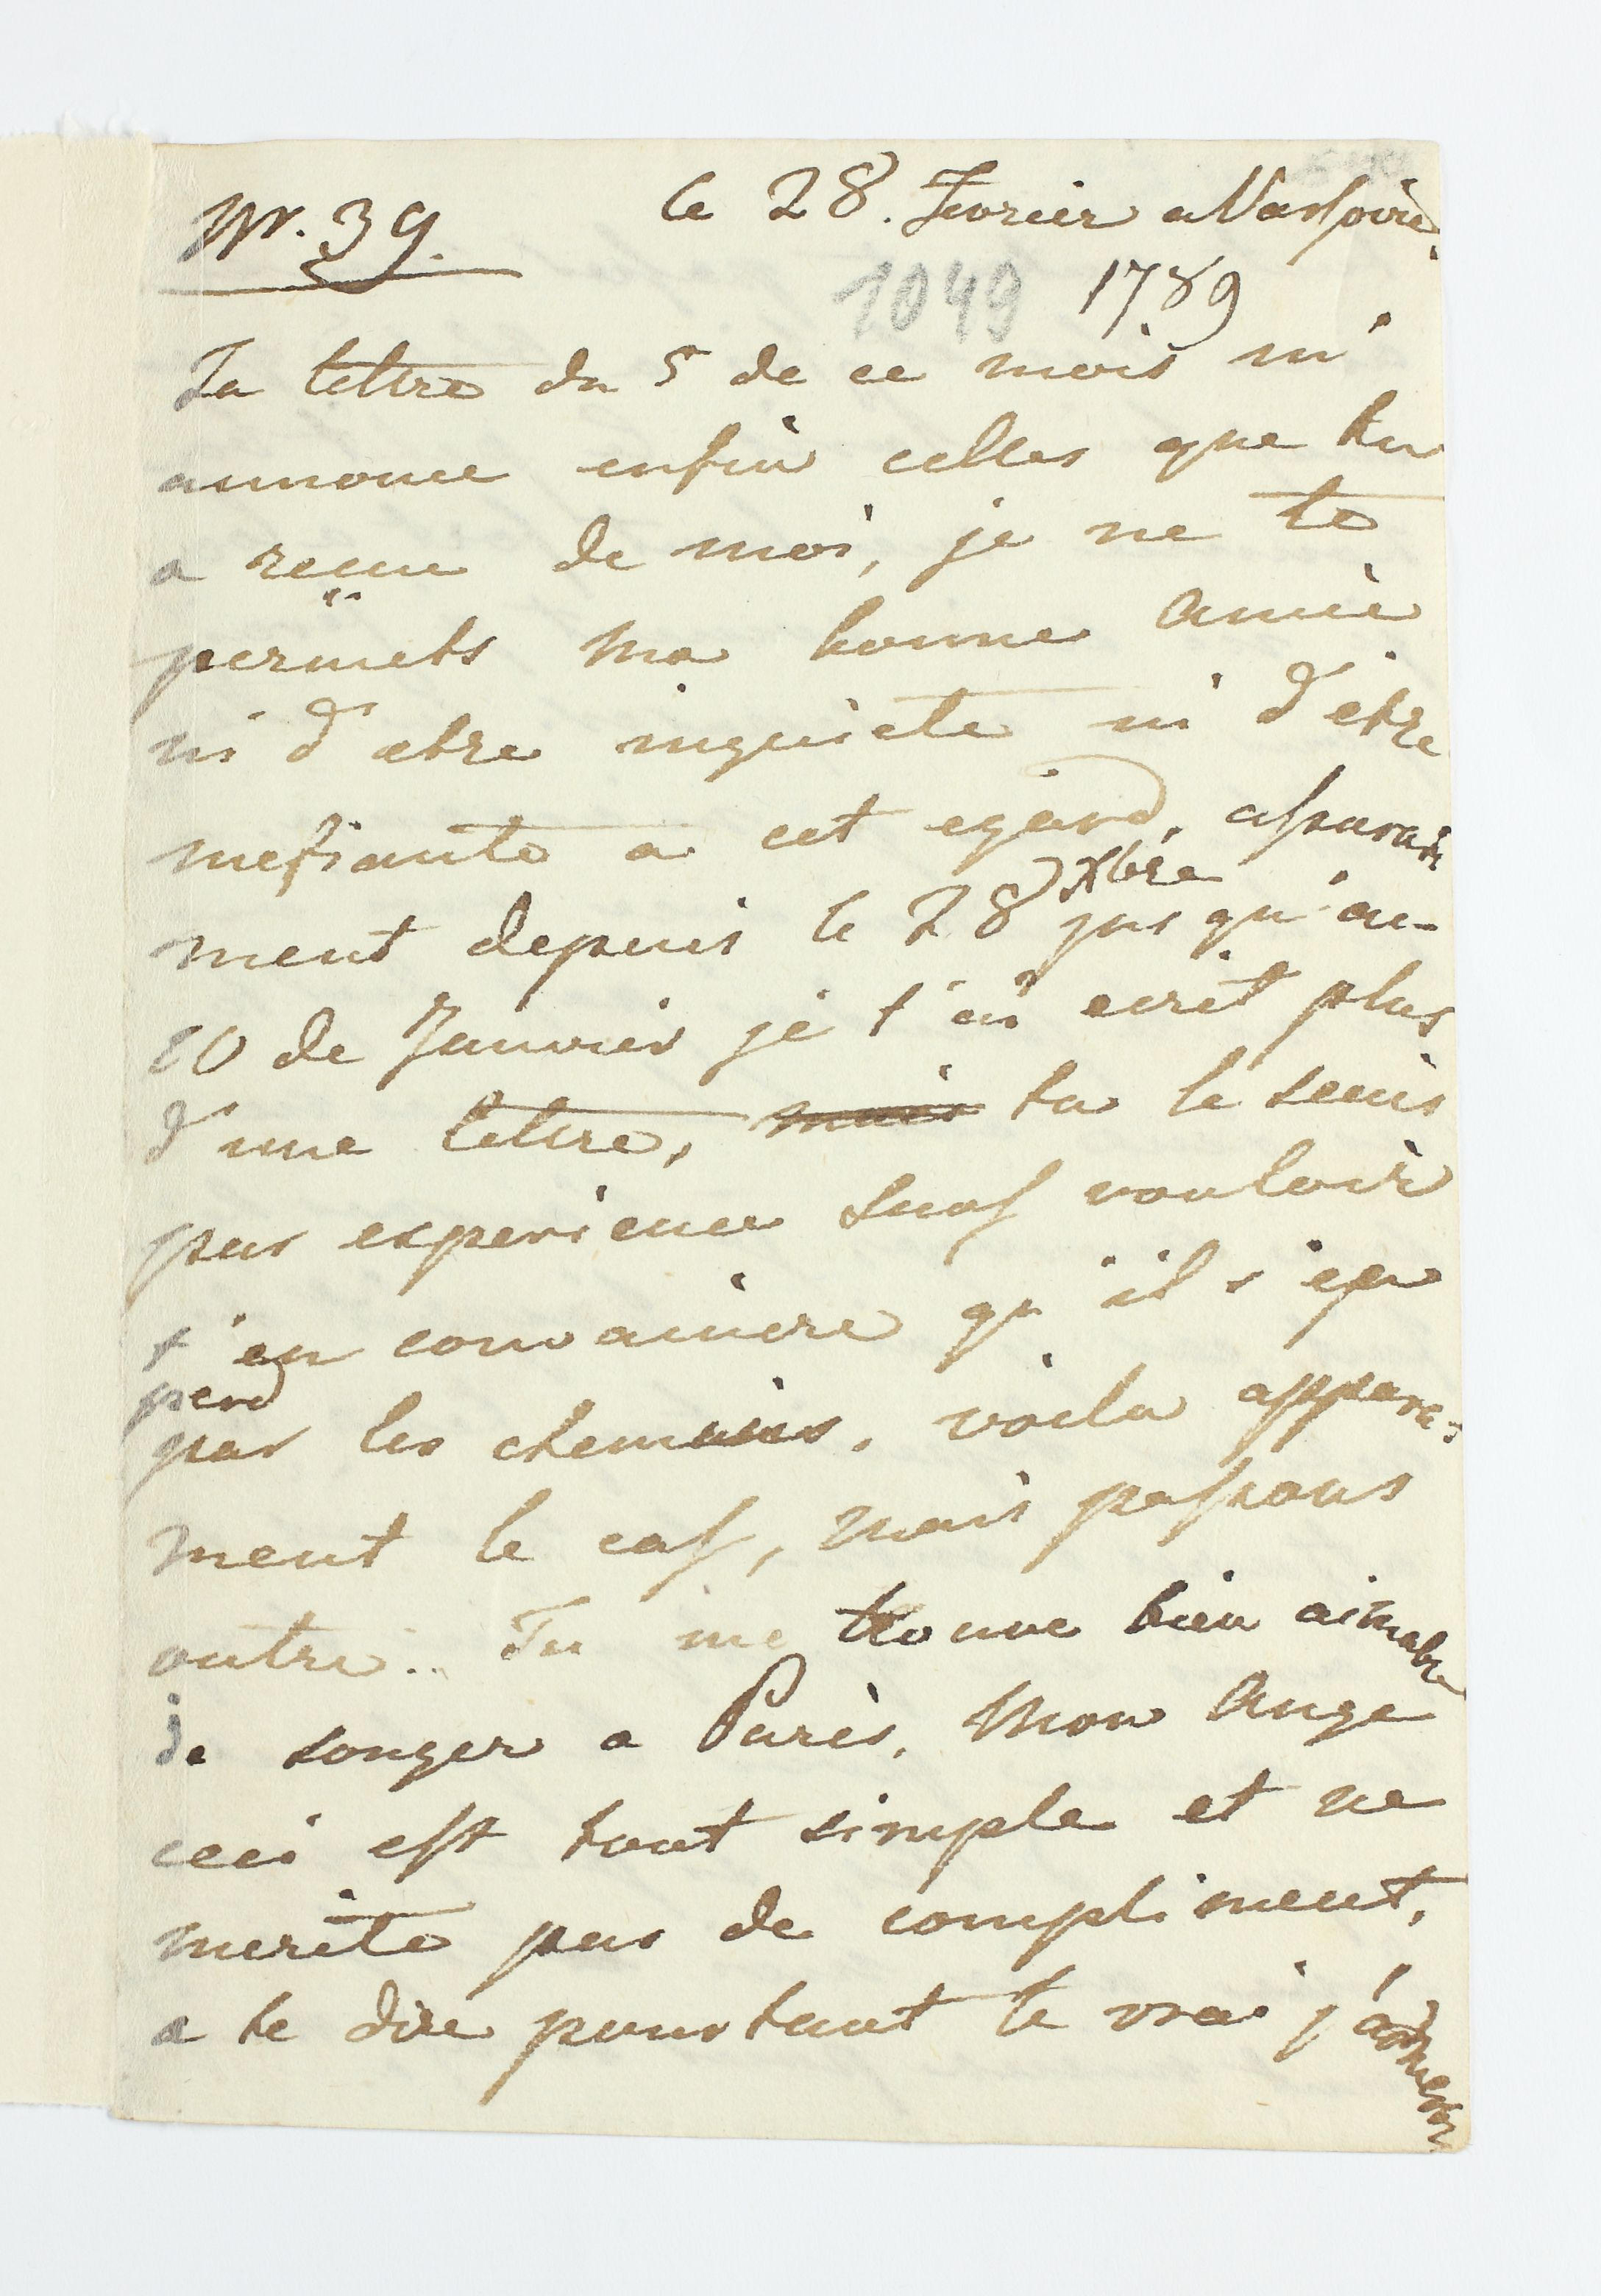 Nr. 39. le 28. Fevrier a Varsovie.
1049 1789
Ta lettre du 5 de ce mois m'
annonce enfin celles que tu
a recue de moi, je ne te
permets ma bonne Amie
ni d'etre inquiete ni d'etre
mefiante a cet egard, assurem
ment depuis le 28 Xbre jusqu'au-
10 de Janvier je t'ai ecrit plus
d'une lettre, mais tu le scais
par experience sauf vouloir
t'en convaincre qu'il s'en
perd
par les chemins, voila appara-
ment le cas, mais passons
outre.. Tu me trouve bien aimable
de songer a Paris, Mon Ange
ceci est tout simple et ne
merite pas de compliment,
a te dire pourtant le vrai